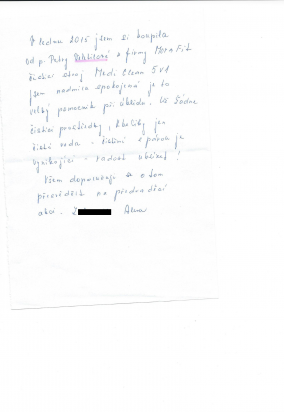 V lednu 2015 jsem si koupila
od p. Petry a firmy MoraFit
čistící stroj Medi Clean 5 v 1
jsem nadmíru spokojená je to
velký pomocník při úklidu. Už žádné
čistící prostředky, kbelíky jen
čistá voda - čištění s párou je
vynikající - radost uklízet!
Všem doporučuji se o tom
přesvědčit na předváděcí
akci - Alena